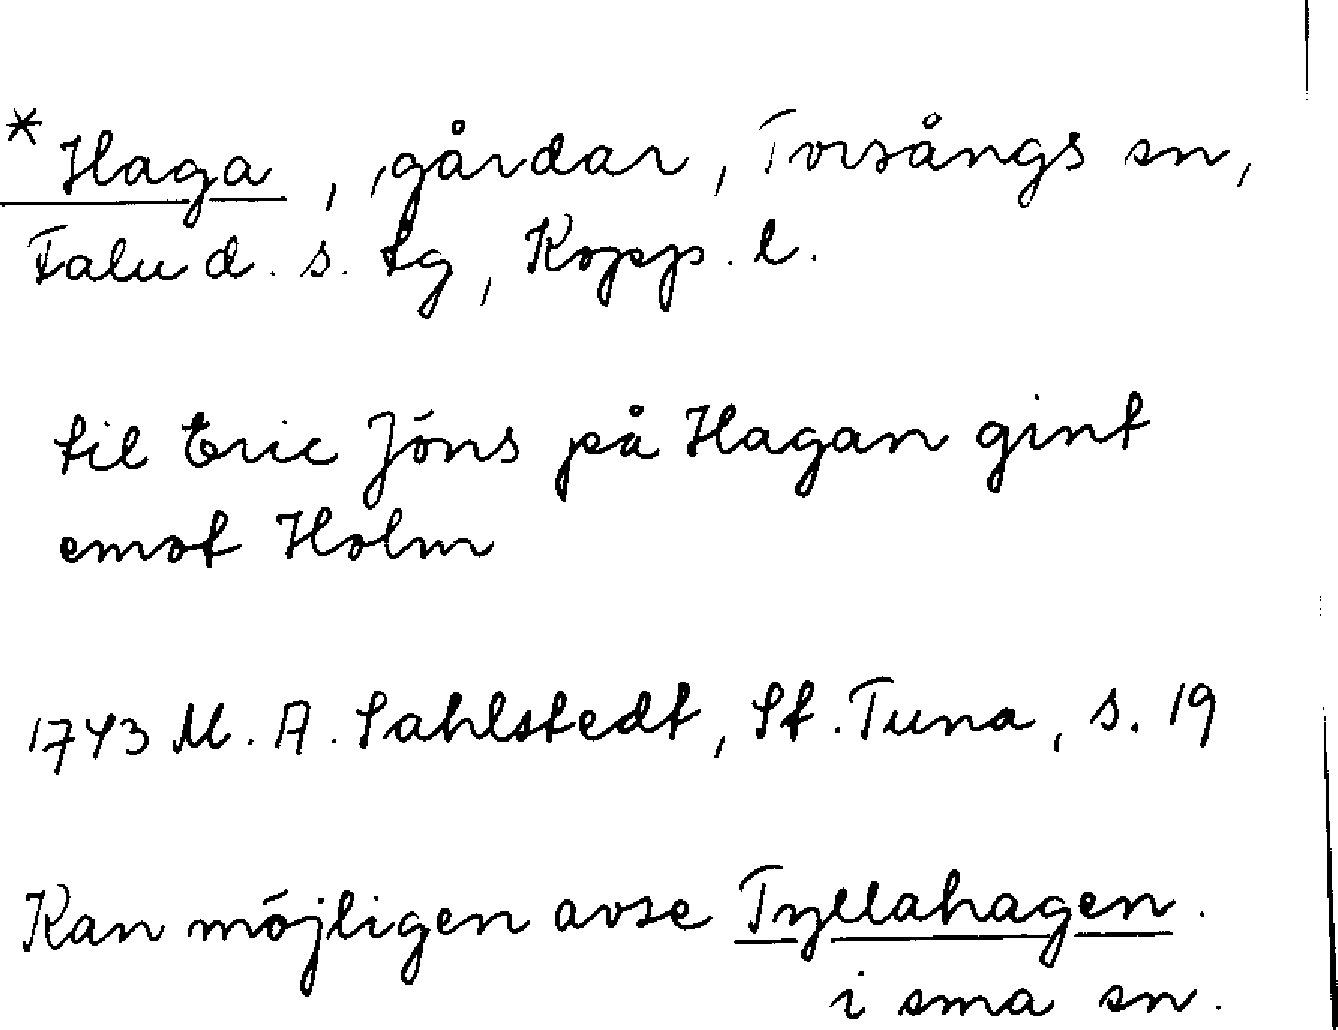 * Haga, gårdar, Torsångs sn,
Falu d. s. tg, Kopp. l.
til Eric Jöns på Hagan gint
emot Holm
1743 M. A. Sahlstedt, St. Tuna, s. 19
Kan möjligen avse Tyllahagen.
i sma sn.